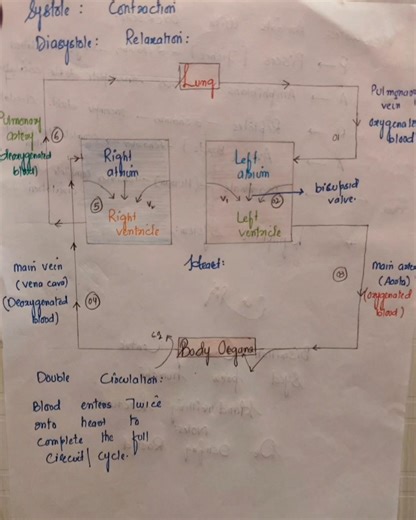 Systole : Contraction
Diasystole : Relaxation :
Lung
Pulmonary
vein
oxygenated
blood
01
Pulmonary
artery
(Deoxygenated
blood)
6
Right
atrium
Left
atrium
bicuspid
valve.
5
V₂
V₁
02
Right
ventricle
Left
ventricle
Heart :
main vein
(vena cava)
(Deoxygenated
blood)
04
03
main artery
(Aorta)
(oxygenated
blood)
Body Organs
Double Circulation :
Blood enters Twice
onto heart to
complete the full
circuit/cycle.